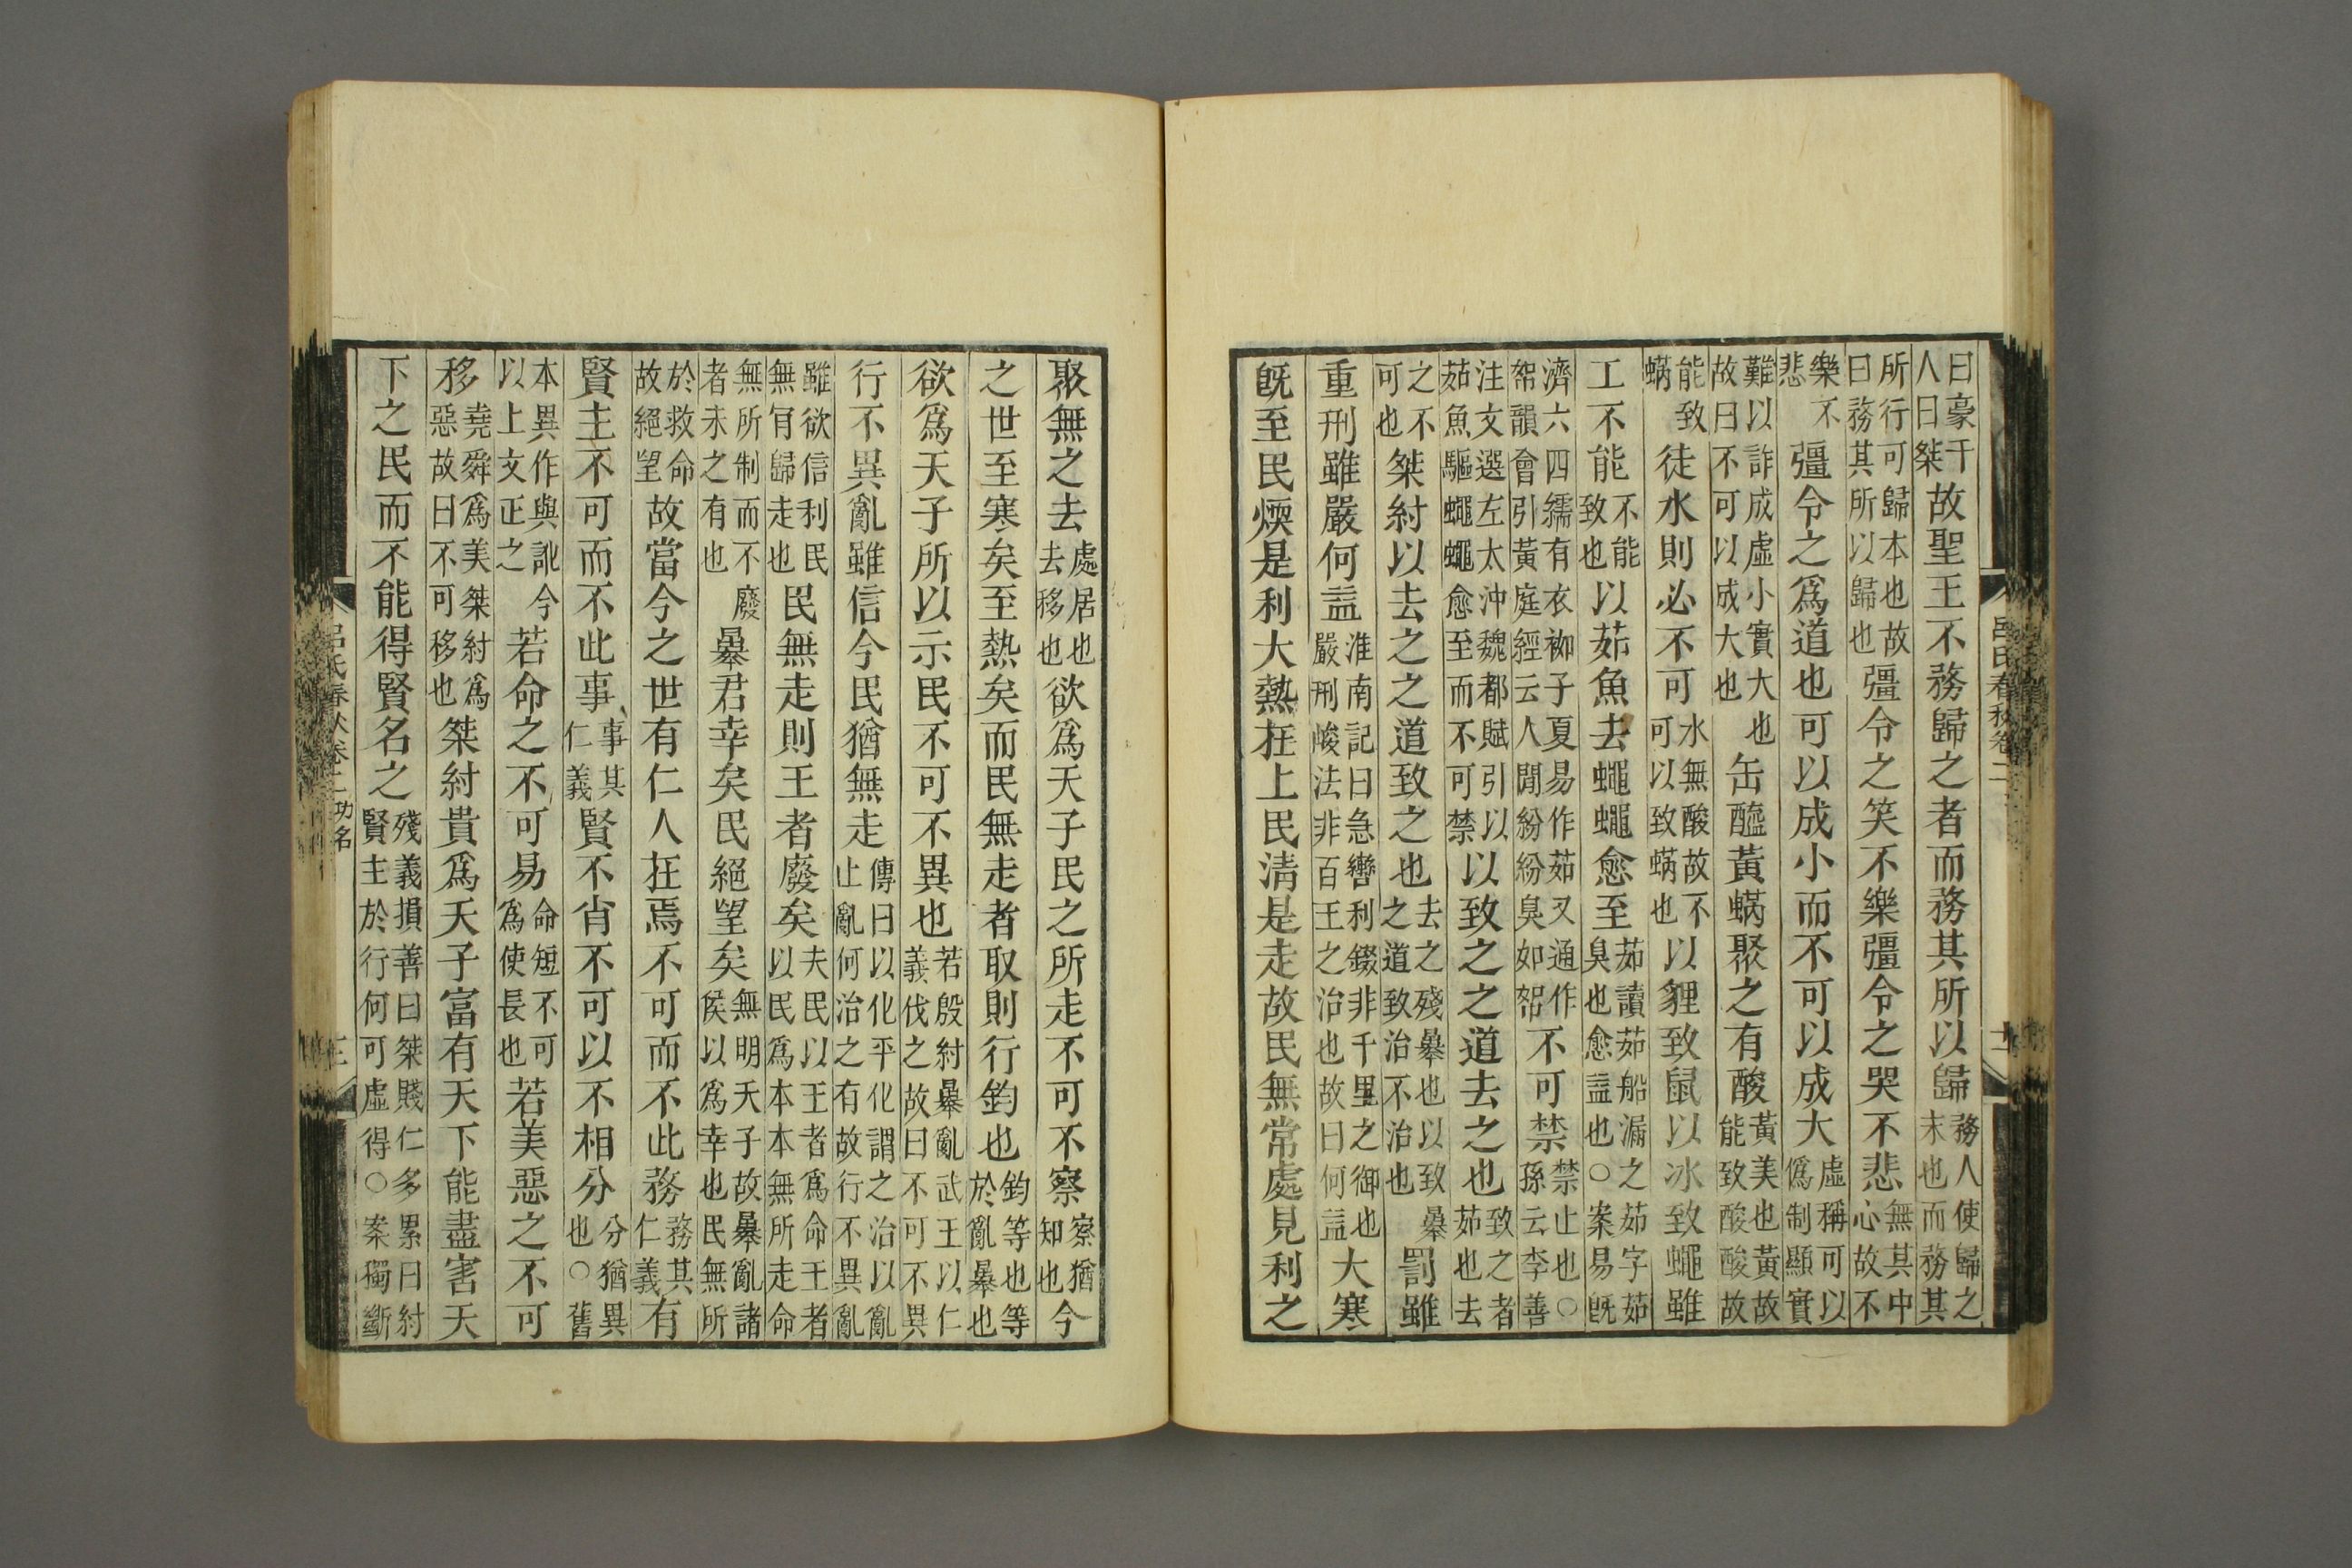 曰豪千人曰桀故聖王不務歸之者而務其所以歸務人使歸之末也而務其
所行可歸本也故曰務其所以歸也彊令之笑不樂彊令之哭不悲無其中心故不
樂不悲彊令之爲道也可以成小而不可以成大虛稱可以僞制顯實
難以詐成虛小實大也故曰不可以成大也缶醯黃蜹聚之有酸黃美也黃故能致酸酸故
能致蜹徒水則必不可水無酸故不可以致蜹也以貍致鼠以冰致蠅雖
工不能不能致也以茹魚去蠅蠅愈至茹讀茹船漏之茹字茹臭也愈益也○案易既
濟六四繻有衣袽子夏易作茹又通作帤韻會引黃庭經云人閒紛紛臭如帤不可禁禁止也○孫云李善
注文選左太沖魏都賦引以茹魚驅蠅蠅愈至而不可禁以致之之道去之也致之者茹也去
之不可也桀紂以去之之道致之也去之殘暴也以致暴之道致治不治也罰雖
重刑雖嚴何益淮南記曰急轡利錣非千里之御也嚴刑峻法非百王之治也故曰何益大寒
既至民煗是利大熱在上民清是走故民無常處見利之
呂氏春秋卷二
聚無之去處居也去移也欲爲天子民之所走不可不察察猶知也今
之世至寒矣至熱矣而民無走者取則行鈞也鈞等也等於亂暴也
欲爲天子所以示民不可不異也若殷紂暴亂武王以仁義伐之故曰不可不異
行不異亂雖信今民猶無走傳曰以化平化謂之治以亂止亂何治之有故行不異亂
雖欲信利民無肎歸走也民無走則王者廢矣夫民以王者爲命王者以民爲本本無所走命
無所制而不廢者未之有也暴君幸矣民絕望矣無明天子故暴亂諸侯以爲幸也民無所
於救命故絕望故當今之世有仁人在焉不可而不此務務其仁義有
賢主不可而不此事事其仁義賢不肖不可以不相分分猶異也○舊
本異作與訛今以上文正之若命之不可易命短不可爲使長也若美惡之不可
移堯舜爲美桀紂爲惡故曰不可移也桀紂貴爲天子富有天下能盡害天
下之民而不能得賢名之殘義損善曰桀賤仁多累曰紂賢主於行何可虛得○案獨斷
呂氏春秋卷二 功名